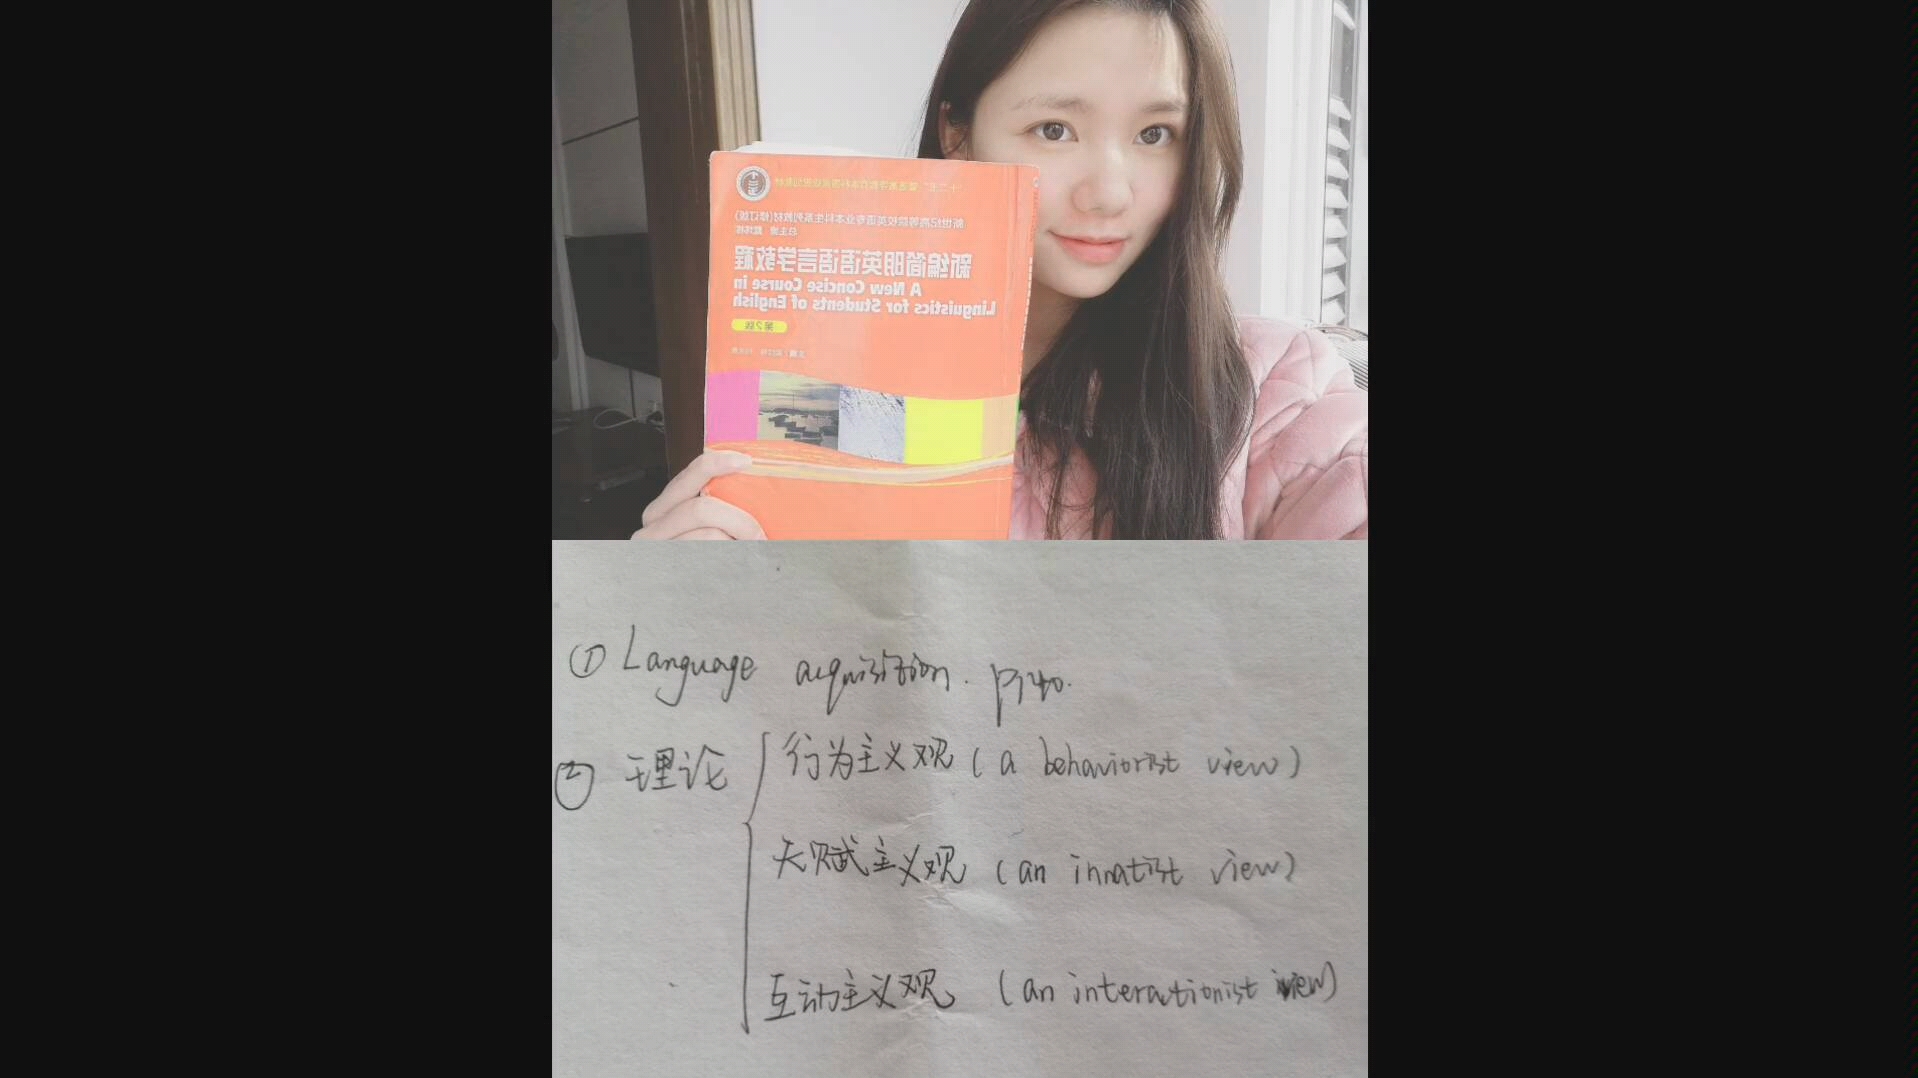 "十二五"普通高等教育本科国家级规划教材
新世纪高等院校英语专业本科生系列教材(修订版)
总主编 戴炜栋
新编简明英语语言学教程
A New Concise Course in
Linguistics for Students of English
第2版
① Language acquisition. P140.
② 理论
行为主义观 (a behaviorist view)
天赋主义观 (an innatist view)
互动主义观 (an interactionist view)